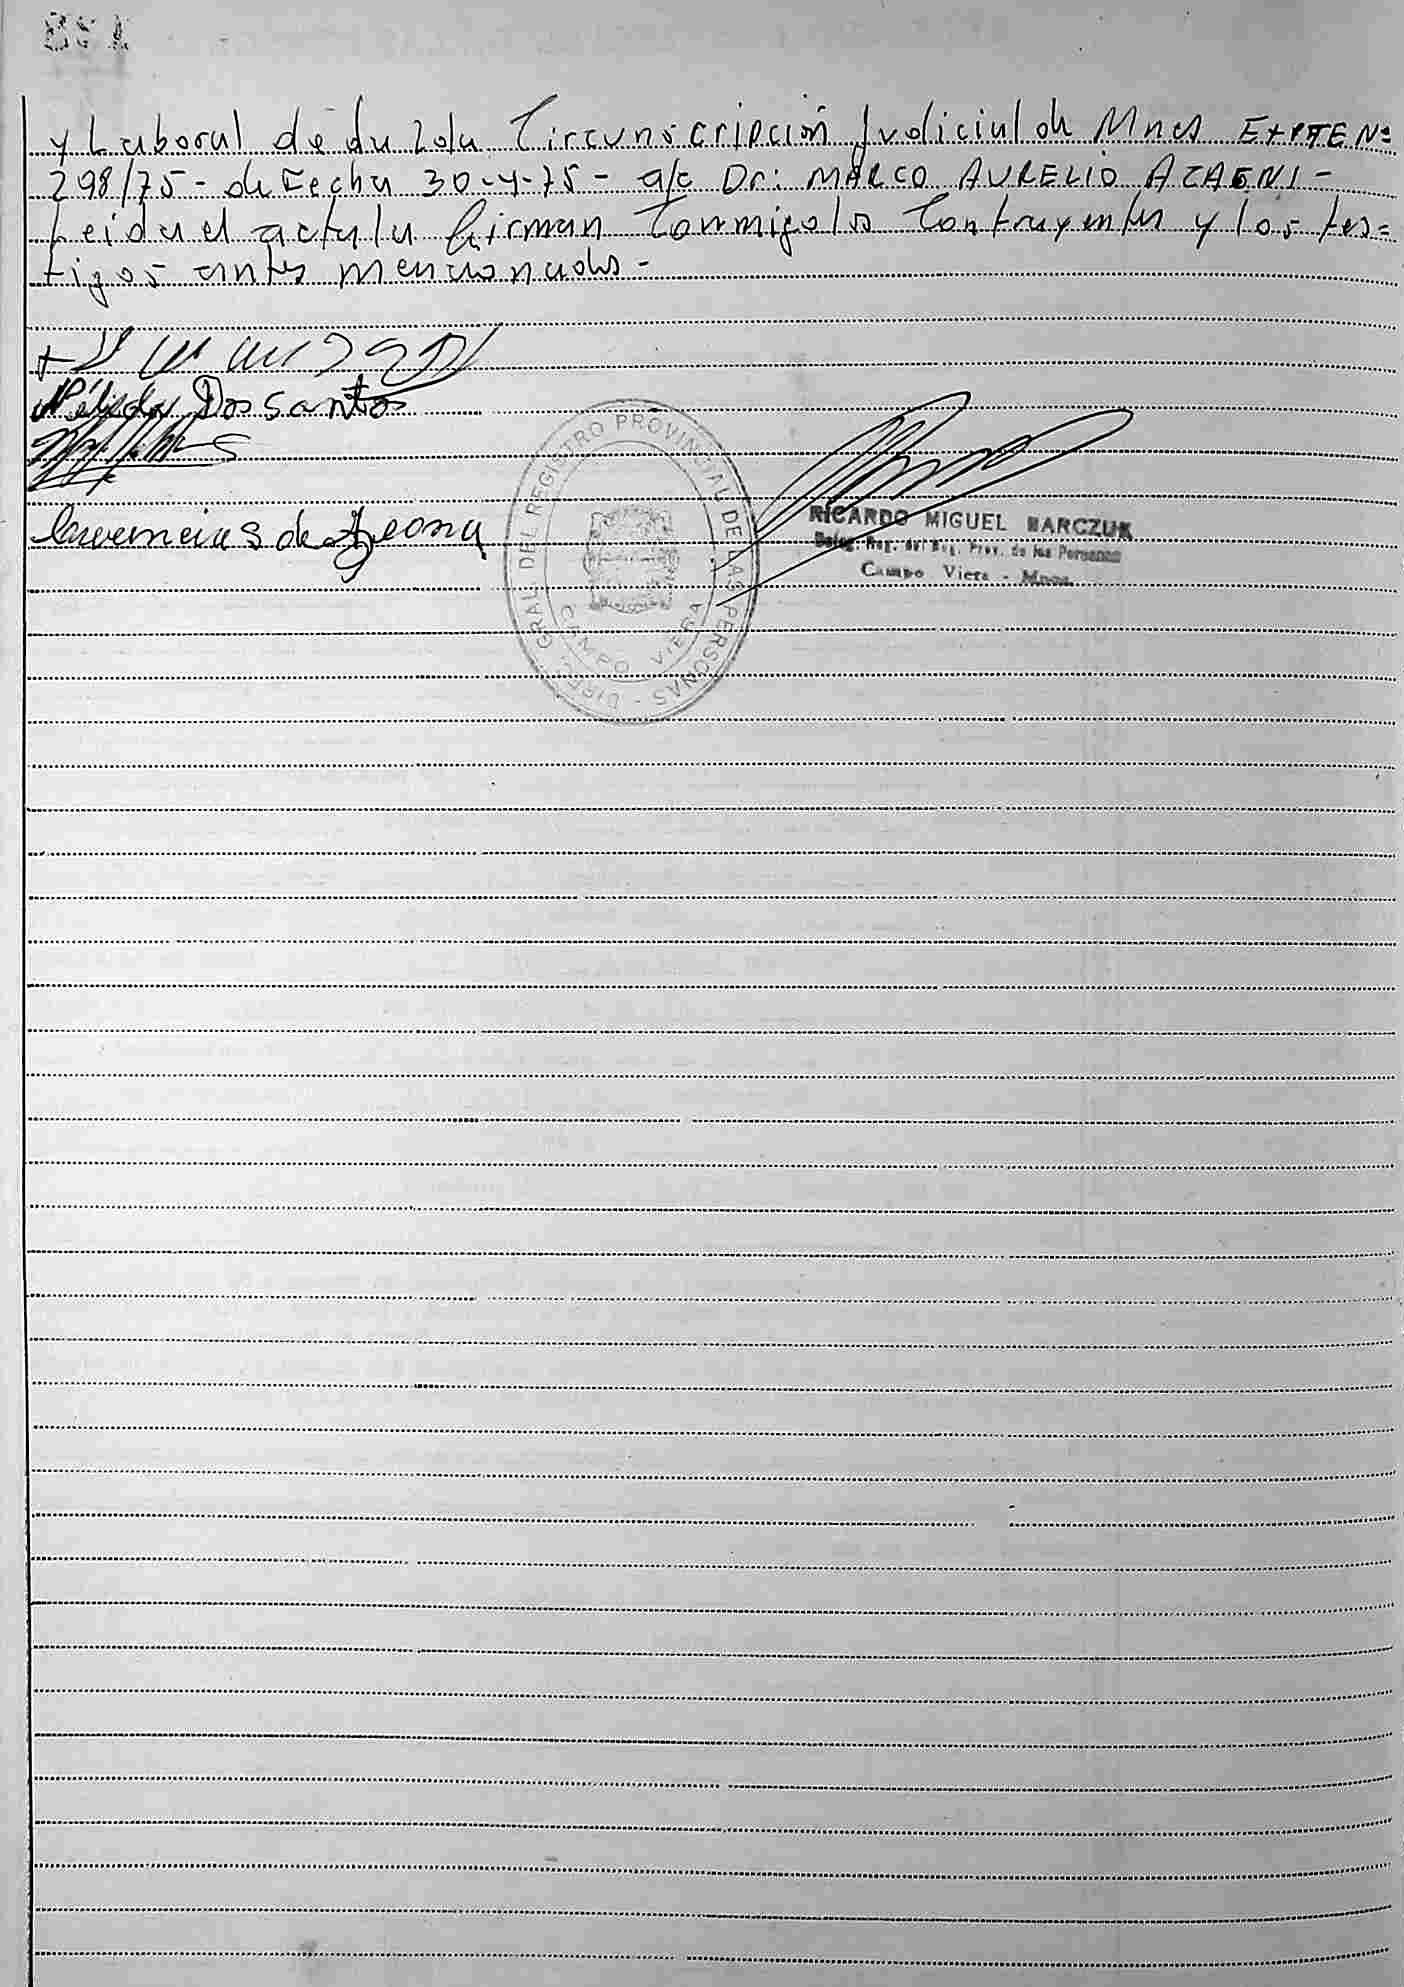 y Laboral de la 2da Circunscripción Judicial de Mnes EXPTE Nº
298/75 - de fecha 30-4-75 - a/c Dr: MARCO AURELIO
Leida el acta la firman conmigo los contrayentes y los tes=
tigos antes mencionados -
Nélida Dos Santos
DIREC. GRAL. DEL REGISTRO PROVINCIAL DE LAS PERSONAS -
CAMPO VIERA
RICARDO MIGUEL MARCZUK
Deleg. Reg. del Reg. Prov. de las Personas
Campo Viera - Mnes.